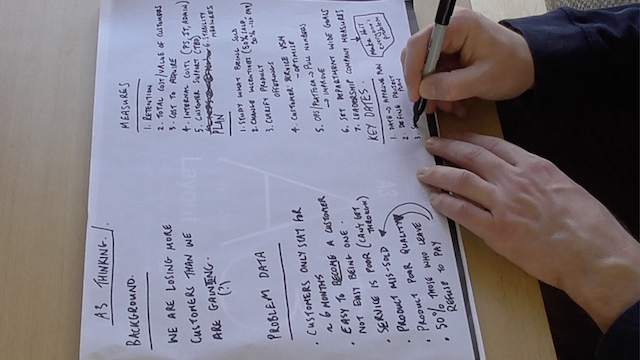 A3 THINKING.
BACKGROUND.
WE ARE LOSING MORE
CUSTOMERS THAN WE
ARE GAINING.
(?)
PROBLEM DATA
• CUSTOMERS ONLY STAY FOR
≈ 6 MONTHS
• EASY TO BECOME A CUSTOMER
NOT EASY BEING ONE.
• SERVICE IS POOR (CAN'T GET
THROUGH)
• PRODUCT MIS-SOLD
• PRODUCT POOR QUALITY
• 50% THOSE WHO LEAVE
TO PAY
MEASURES
1. RETENTION
2. TOTAL COST/VALUE OF CUSTOMERS
3. COST TO ACQUIRE
4. INTERNAL COSTS (IT, ADMIN)
5. CUSTOMER SUPPORT
MEASURES
PLAN
1. STUDY WHAT BEING SOLD
2. CHANGE INCENTIVES
3. CLARIFY PRODUCT
OFFERINGS
4. CUSTOMER SERVICE VSM
→ OPTIMISE
5. → PULL NUMBERS
→ IMPROVE
6. SET DEPARTMENT WIDE GOALS
7. LEADERSHIP COMPANY MEASURES
KEY DATES.
1. → APPROVE PLAN
2. DEFINE PROJECT
PLAN
3.